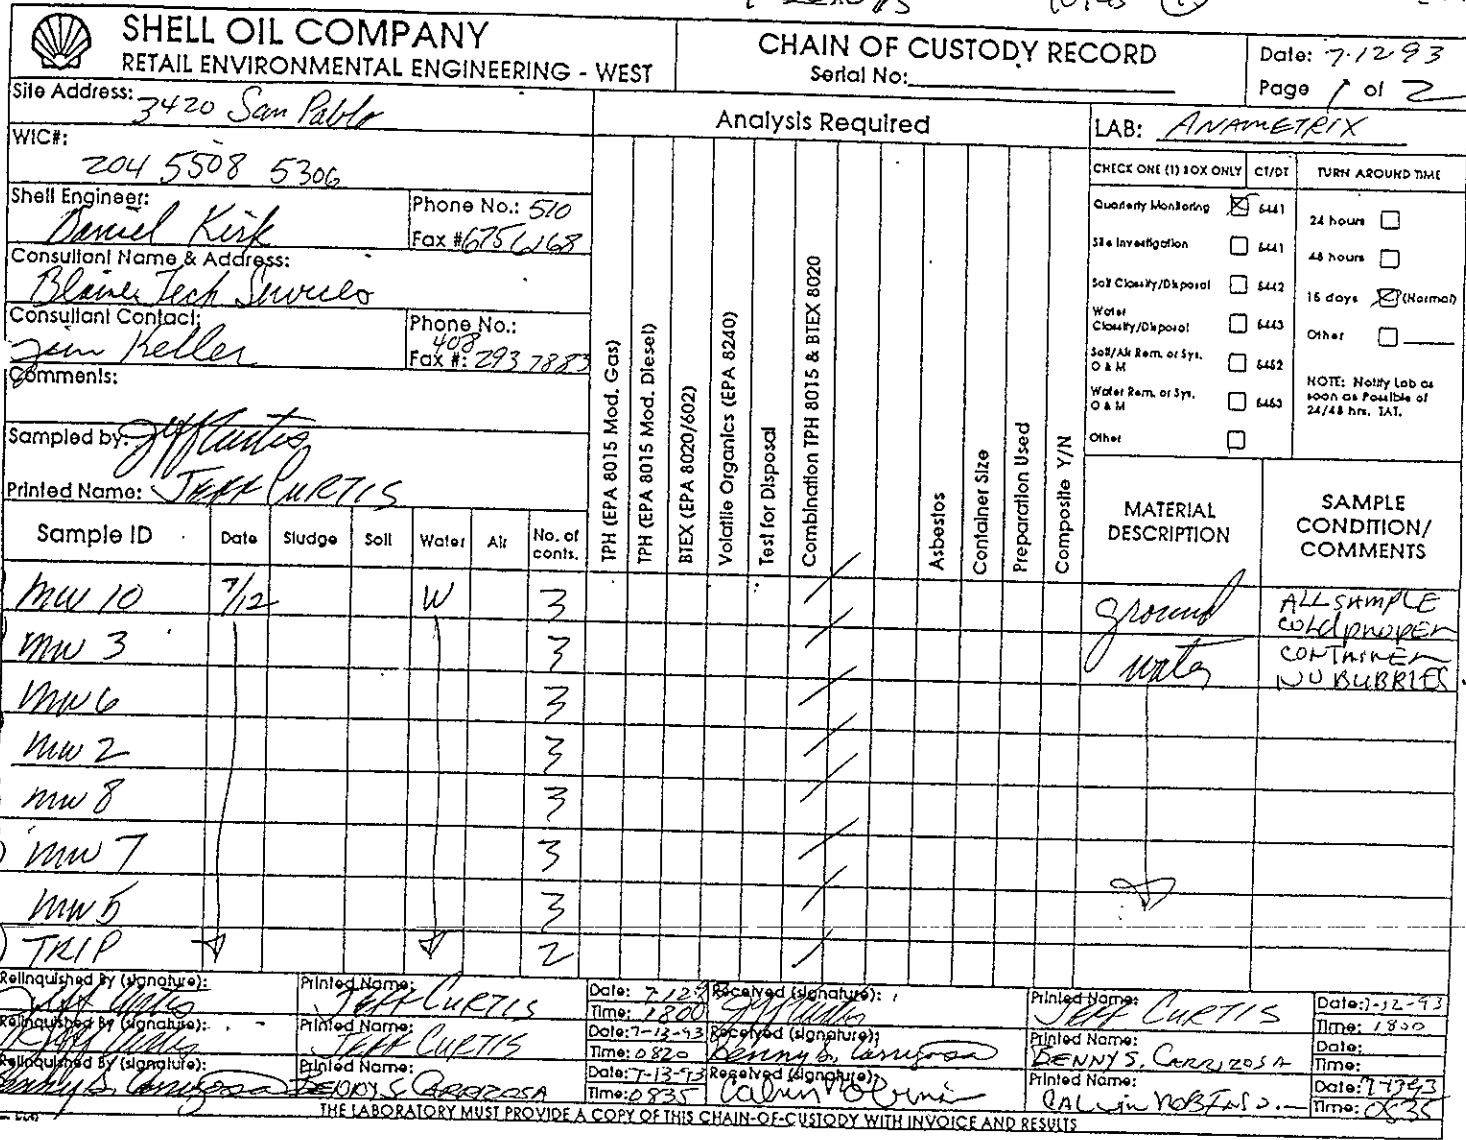 SHELL OIL COMPANY
RETAIL ENVIRONMENTAL ENGINEERING - WEST
CHAIN OF CUSTODY RECORD
Serial No:
Date: 7-12-93
Page 1 of 2
Site Address: 3420 San Pablo
WIC#: 204 5508 5306
Shell Engineer: Daniel Kirk
Phone No.: 510
Fax #: 675 6168
Consultant Name & Address:
Blaine Tech Services
Consultant Contact: Jim Keller
Phone No.: 408
Fax #: 293 7883
Comments:
Sampled by: Jeff Curtis
Printed Name: JEFF CURTIS
Analysis Required
LAB: ANAMETRIX
CHECK ONE (1) BOX ONLY CT/DT TURN AROUND TIME
Quarterly Monitoring 6441
Site Investigation 6441
Soil Classify/Disposal 6442
Water Classify/Disposal 6443
Soil/Air Rem. or Sys. O & M 6452
Water Rem. or Sys. O & M 6453
Other
24 hours
48 hours
15 days (Normal)
Other
NOTE: Notify Lab as soon as Possible of 24/48 hrs. TAT.
TPH (EPA 8015 Mod. Gas)
TPH (EPA 8015 Mod. Diesel)
BTEX (EPA 8020/602)
Volatile Organics (EPA 8240)
Test for Disposal
Combination TPH 8015 & BTEX 8020
Asbestos
Container Size
Preparation Used
Composite Y/N
MATERIAL DESCRIPTION
SAMPLE CONDITION/ COMMENTS
Sample ID Date Sludge Soil Water Air No. of conts.
MW 10 7/12 W 3 / ground ALL SAMPLE COLD PROPER
MW 3 3 / water CONTAINER NO BUBBLES
MW 6 3 /
MW 2 3 /
MW 8 3 /
MW 7 3 /
MW 5 3 /
TRIP 2 /
Relinquished By (signature): Jeff Curtis
Printed Name: JEFF CURTIS
Date: 7-12
Time: 1800
Received (signature): Jeff Curtis
Printed Name: JEFF CURTIS
Date: 7-12-93
Time: 1800
Relinquished By (signature): Jeff Curtis
Printed Name: JEFF CURTIS
Date: 7-13-93
Time: 0820
Received (signature): Benny S. Carrizosa
Printed Name: BENNY S. CARRIZOSA
Date:
Time:
Relinquished By (signature): Benny S. Carrizosa
Printed Name: BENNY S. CARRIZOSA
Date: 7-13-93
Time: 0835
Received (signature): Calvin
Printed Name: CALVIN
Date: 7-13-93
Time: 0835
THE LABORATORY MUST PROVIDE A COPY OF THIS CHAIN-OF-CUSTODY WITH INVOICE AND RESULTS